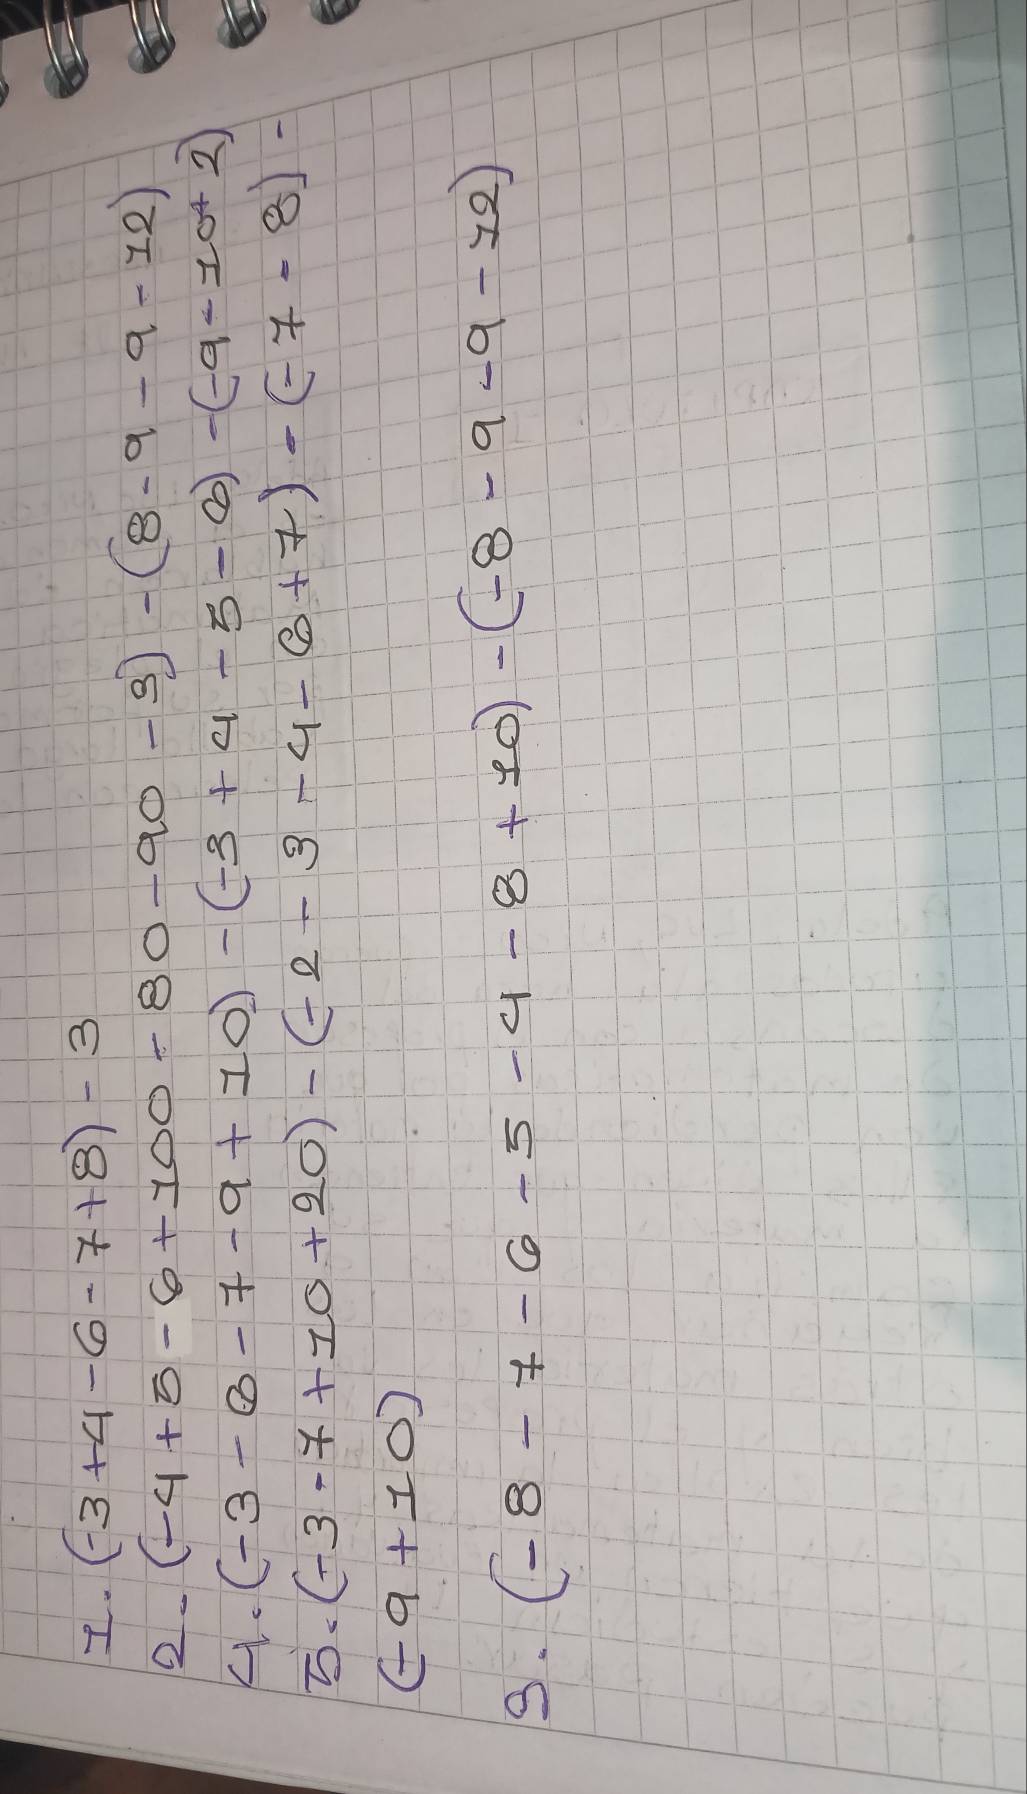 1. (-3+4-6-7+8)-3
2. (-4+5-6+100-80-90-3)-(8-9-9-12)
4. (-3-8-7-9+10)-(-3+4-5-6)-(-9-10+2)
5. (-3-7+10+20)-(-2-3-4-6+7)-(-7-8)-
(-9+10)
3. (-8-7-6-5-4-8+10)-(-8-9-9-12)